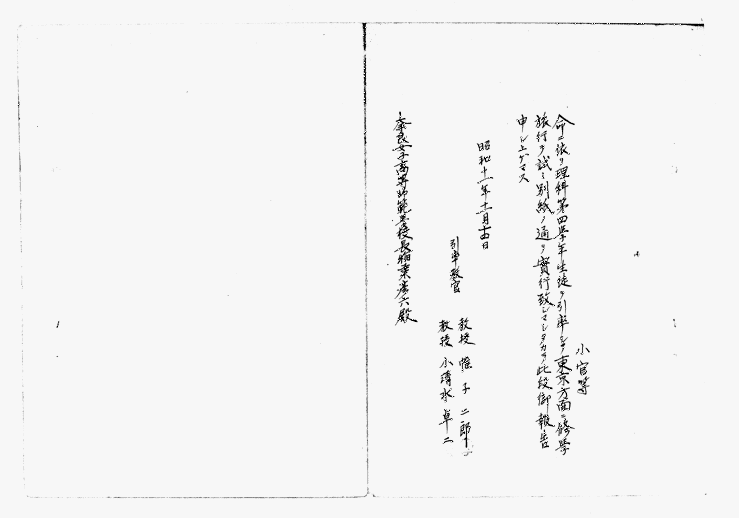 小官等
命ニ依リ理科第四學年生徒ヲ引率シテ東京方面ニ修學
旅行ヲ試ミ別紙ノ通リ實行致シマシタカラ此段御報告
申シ上ゲマス
昭和十一年十一月十四日
引率教官
教授 惟子二郎
教授 小清水卓二
奈良女子高等師範學校長 彦六殿